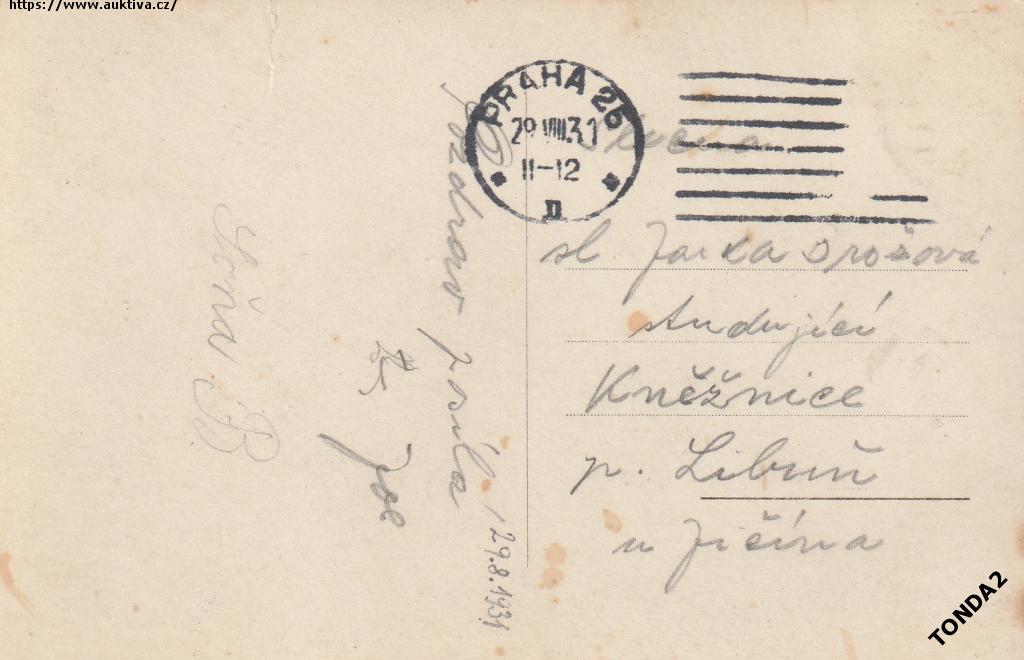 https://www.auktiva.cz/
PRAHA 26
29.VIII.31
11-12
II
Slečna
sl Jarka Drošová
studující
Kněžnice
p. Libuň
u Jičína
Pozdrav posílá
Joe
29.8.1931
Soňa B
TONDA2